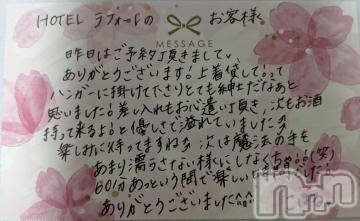 HOTEL ラフォートの お客様
MESSAGE
昨日はご予約頂きまして、
ありがとうございます!上着貸してもらって
ハンガーに掛けてたりとても紳士だなあと
思いました!差し入れもお心遣い頂き、次もお酒
持って来るよ!と優しさで溢れていました
楽しみに待ってますね 次は魔法の手を
あまり濡らさない様にしなくちゃ!!(笑)
60分あっという間で楽しい
ありがとうございました^^